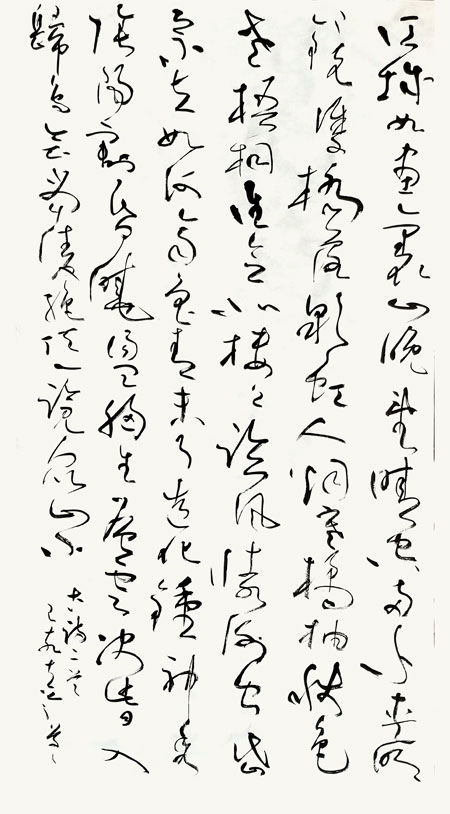 江城如畫裏山晚望晴空兩水夾明
鏡雙橋落彩虹人烟寒橘柚秋色
老梧桐誰念北樓上臨風懷謝公岱
宗夫如何齊魯青未了造化鍾神秀
陰陽割昏曉盪胸生層雲決眥入
歸鳥會當凌絕頂一覽眾山小
古詩二首